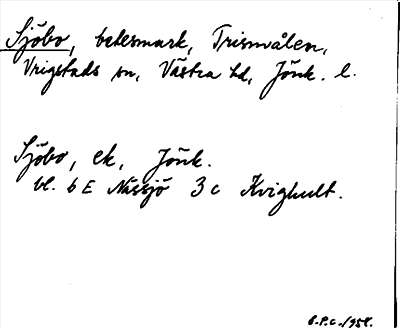 Sjöbo, betesmark, Trismålen,
Vrigstads sn, Västra hd, Jönk. l.
Sjöbo, ek, Jönk.
bl. 6 E Nässjö 3 c Kvighult.
G.P.C. 1958.